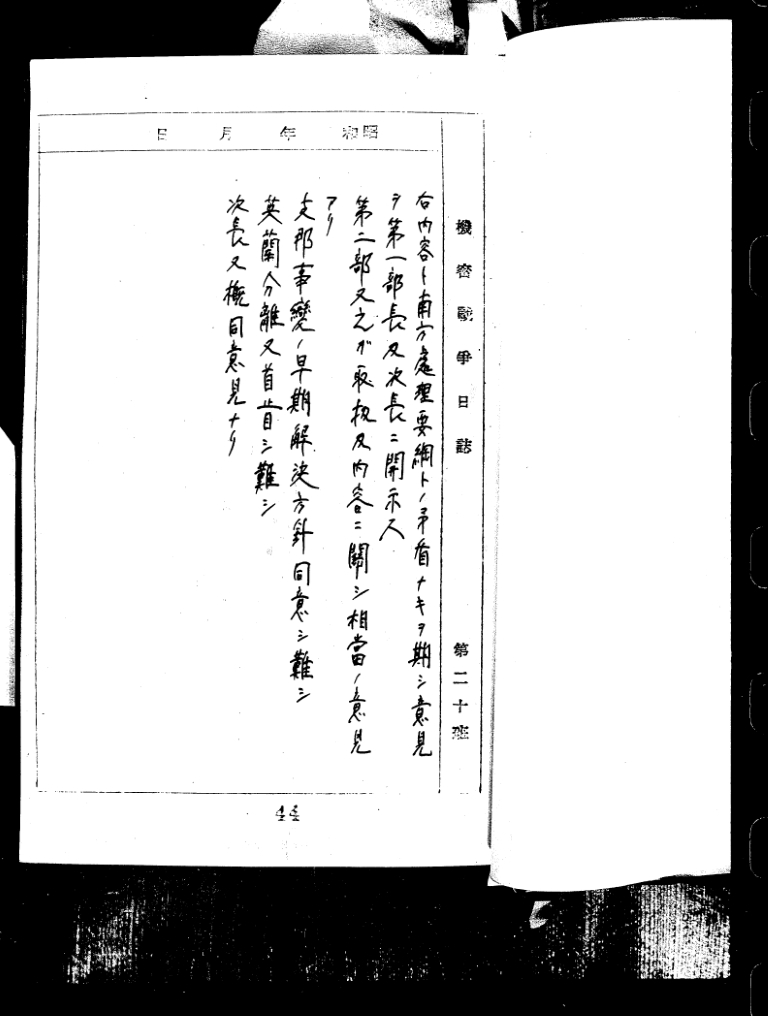 機密戰爭日誌 第二十班
昭和 年 月 日
右内容ト南方處理要綱トノ矛盾ナキヲ期シ意見
ヲ第一部長及次長ニ開示ス
第二部又之ガ取扱及内容ニ關シ相當ノ意見
アリ
支那事變ノ早期解決方針同意シ難シ
英蘭分離又首肯シ難シ
次長又概同意見ナリ
44